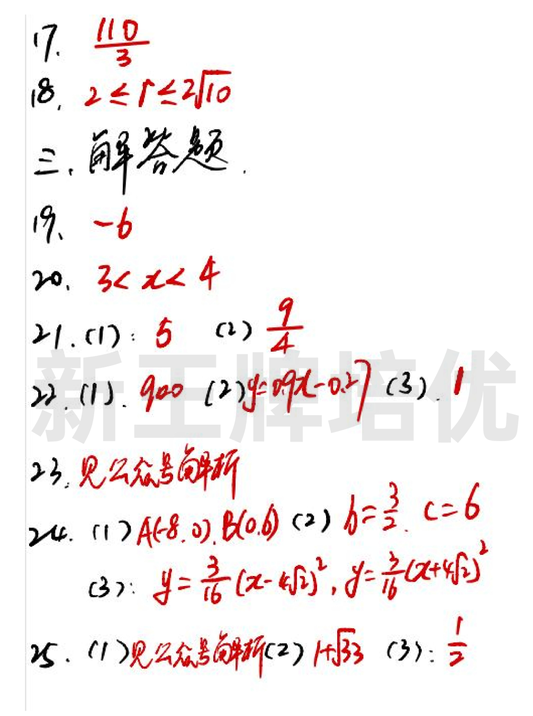 17. 110/3
18. 2≤r≤2√10
三、解答题.
19. -6
20. 3<x<4
21. (1): 5 (2) 9/4
22. (1). 900 (2) y=0.9x-0.27 (3). 1
新王牌培优
23. 见公众号解析
24. (1) A(-8,0), B(0,6) (2) b=3/2, c=6
(3): y=3/16(x-4√2)², y=3/16(x+4√2)²
25. (1) 见公众号解析 (2) 1+√33 (3): 1/2